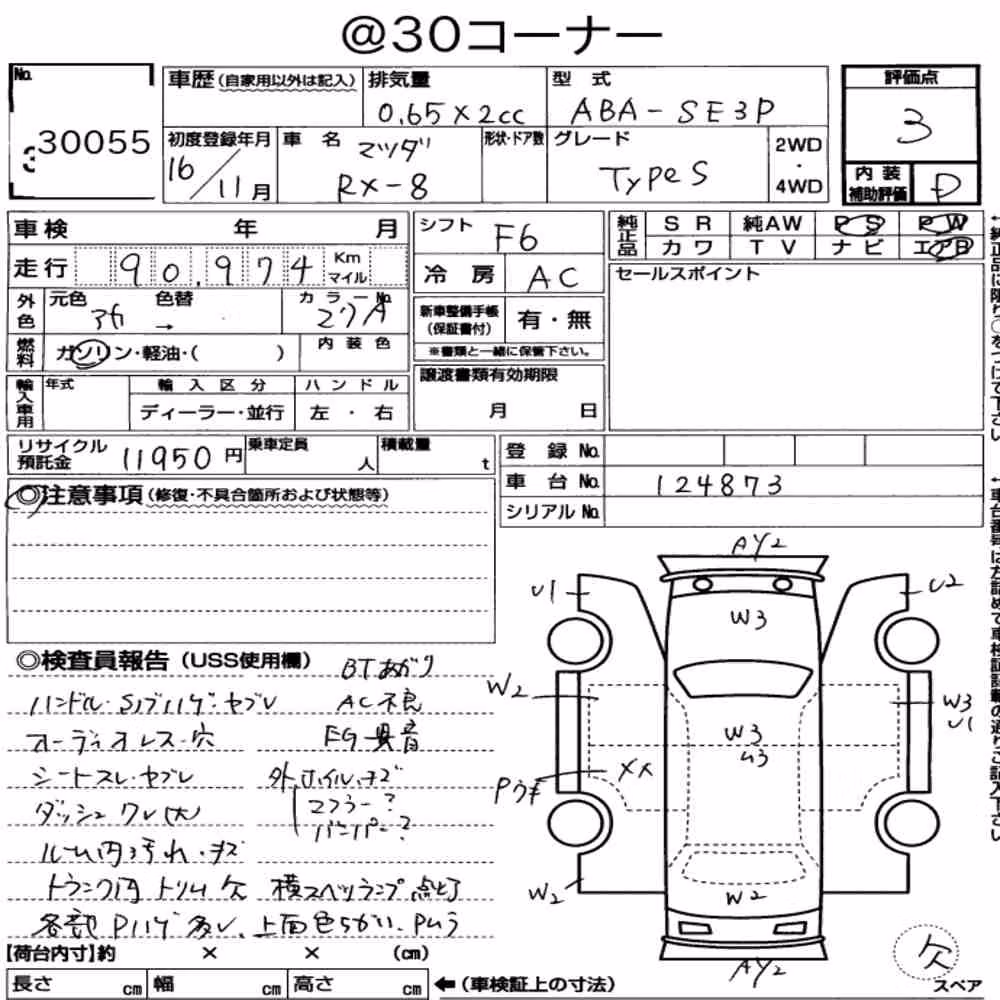 @30コーナー
No.
30055
車歴(自家用以外は記入)
排気量
0.65×2cc
型式
ABA-SE3P
評価点
3
初度登録年月
16/11月
車名
マツダ
RX-8
形状・ドア数
グレード
TypeS
2WD
・
4WD
内装
補助評価
D
車検 年 月
シフト
F6
純正品
SR 純AW PS PW
カワ TV ナビ エアB
走行 90,974 Km
マイル
冷房
AC
セールスポイント
外色
元色
色替
→
カラーNo.
27A
新車整備手帳
(保証書付)
有・無
※書類と一緒に保管下さい。
燃料
ガソリン・軽油・( )
内装色
輸入車用
年式
輸入区分
ハンドル
ディーラー・並行
左・右
譲渡書類有効期限
月 日
リサイクル
預託金
11950円
乗車定員
人
積載量
t
登録No.
車台No. 124873
シリアルNo.
◎注意事項(修復・不具合箇所および状態等)
AY2
U1
U2
W3
W2
W3
U1
W3
XX
W2
W2
AY2
◎検査員報告(USS使用欄)
BTあがり
AC不良
FG異音
オーディオレス・穴
シートスレ・ヤブレ
外ホイルキズ
マフラー?
バンパー?
ルーム内汚れ・キズ
トランク内トリム欠
各部Pハゲ多し、上面色ちがい、Pムラ
【荷台内寸】約 × × (cm)
長さ cm 幅 cm 高さ cm
←(車検証上の寸法)
欠
スペア